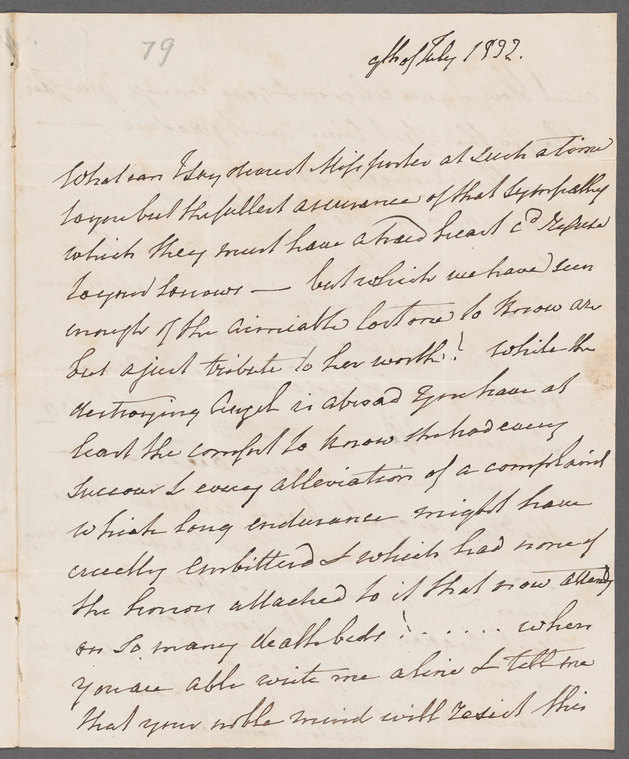 79
9th of July 1832.
What can I say dearest Miss porter at such a time
to you but the fullest assurance of that sympathy
which they must have a hard heart cd refuse
to your sorrows — but which we have seen
enough of the aimiable lost one to know are
but a just tribute to her worth! While the
destroying Angel is abroad you have at
least the comfort to know she had every
succour & every alleviation of a complaint
which long endurance might have
cruelly embitterd & which had none of
the horrors attached to it that now attend
on so many death beds! . . . . . when
you are able write me a line & tell me
that your noble mind will resist this